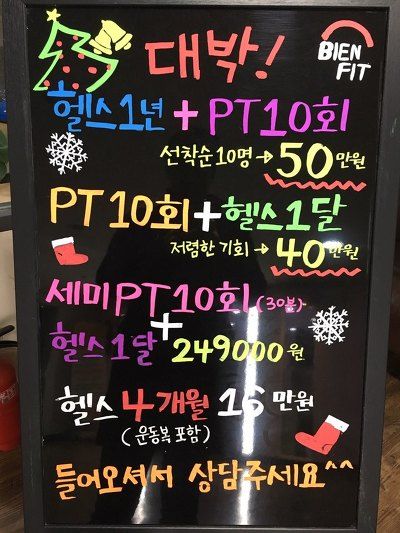 대박!
BIEN
FIT
헬스1년 + PT10회
선착순10명→ 50만원
PT10회+헬스1달
저렴한 기회→ 40만원
세미PT10회(30분)
+
헬스1달 249000원
헬스 4개월 16만원
(운동복 포함)
들어오셔서 상담주세요^^